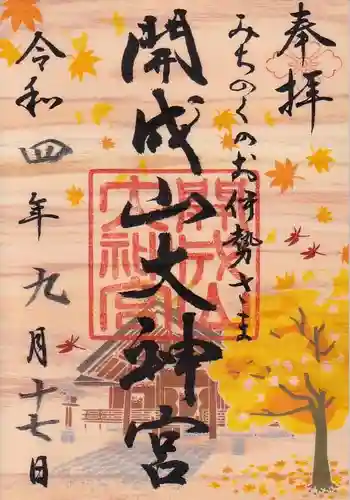 奉拝
みちのくのお伊勢さま
開成山大神宮
令和四年九月十七日
開成山
大神宮